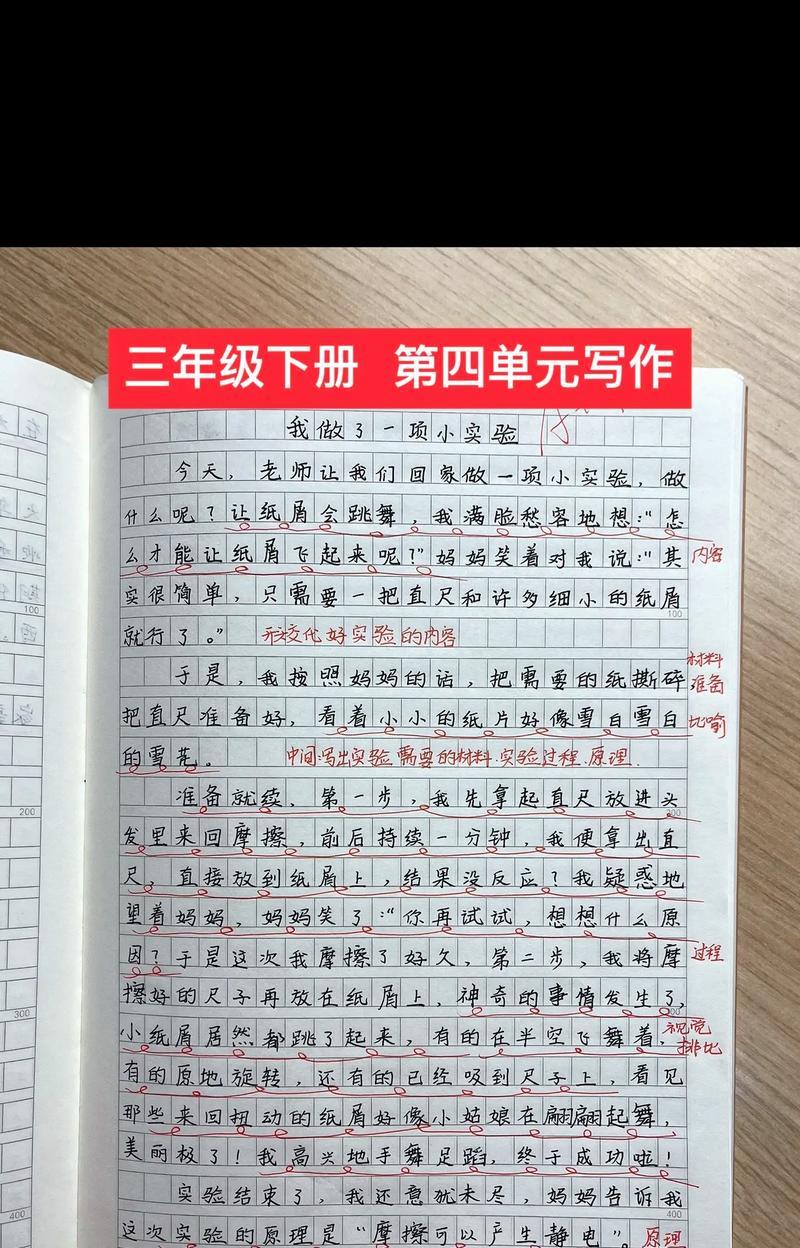 三年级下册 第四单元写作
我做了一项小实验
今天，老师让我们回家做一项小实验，做
什么呢？让纸屑会跳舞，我满脸愁容地想：“怎
么才能让纸屑飞起来呢？”妈妈笑着对我说：“其
内容
实很简单，只需要一把直尺和许多细小的纸屑
100
100
就行了。”
交代好实验的内容
于是，我按照妈妈的话，把需要的纸撕碎
材料
准备
把直尺准备好，看着小小的纸片好像雪白雪白
比喻
的雪花。
中间写出实验需要的材料.实验过程.原理.
准备就续，第一步，我先拿起直尺放进头
200
200
发里来回摩擦，前后持续一分钟，我便拿出直
尺，直接放到纸屑上，结果没反应？我疑惑地
望着妈妈，妈妈笑了：“你再试试，想想什么原
因？于是这次我摩擦了好久，第二步，我将摩
过程
擦好的尺子再放在纸屑上，神奇的事情发生了，
300
300
小纸屑居然都跳了起来，有的在半空飞舞着，
视觉
排比
有的原地旋转，还有的已经吸到尺子上，看见
那些来回扭动的纸屑好像小姑娘在翩翩起舞，
美丽极了！我高兴地手舞足蹈，终于成功啦！
实验结束了，我还意犹未尽，妈妈告诉我
400
400
这次实验的原理是“摩擦可以产生静电”。
原理